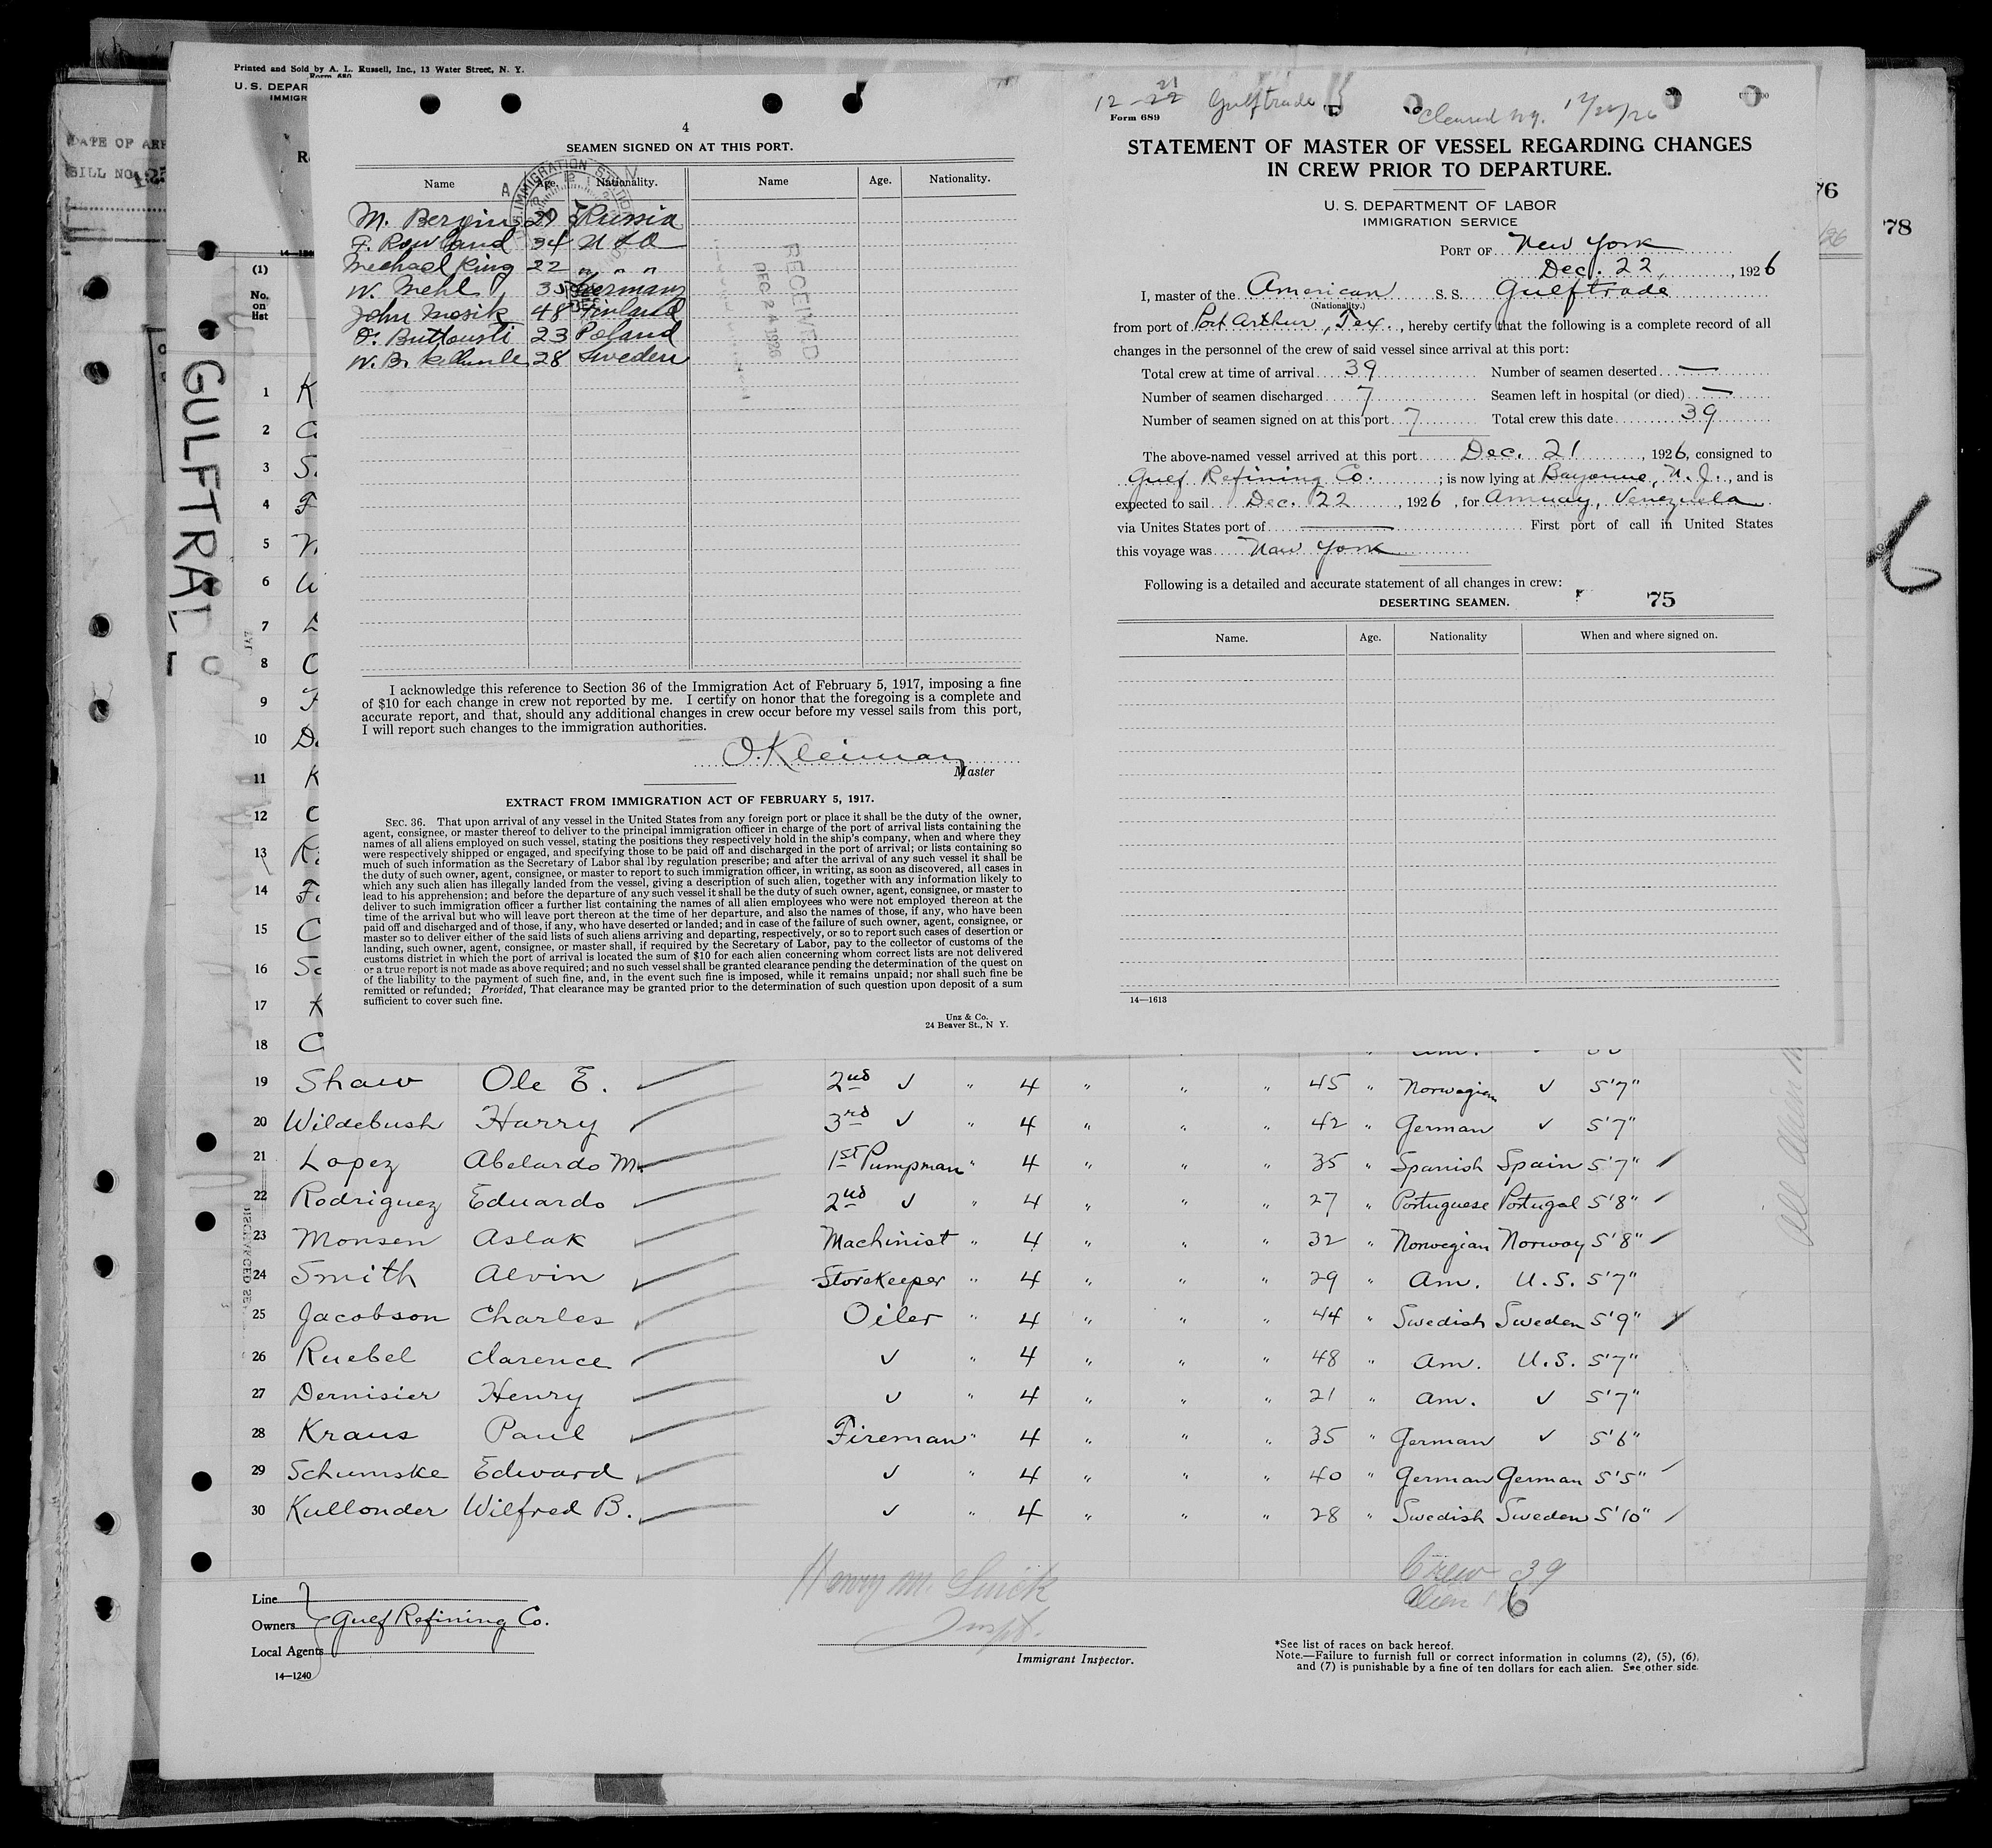 Printed and Sold by A. L. Russell, Inc., 13 Water Street, N. Y.
Form 680
U. S. DEPAR
IMMIGR
DATE OF ARR
BILL NO.
76
78
GULFTRAD
4
SEAMEN SIGNED ON AT THIS PORT.
Name Age. Nationality. Name Age. Nationality.
IMMIGRATION STATION
M. Bergin 29 Russia
F. Rowland 34 U S A
Mechael King 22 " " "
W. Mehl 35 Germany
John Mosik 48 Finland
23 Poland
W. B. 28 Sweden
RECEIVED
DEC 24 1926
I acknowledge this reference to Section 36 of the Immigration Act of February 5, 1917, imposing a fine
of $10 for each change in crew not reported by me. I certify on honor that the foregoing is a complete and
accurate report, and that, should any additional changes in crew occur before my vessel sails from this port,
I will report such changes to the immigration authorities.
O. Kleiman
Master
EXTRACT FROM IMMIGRATION ACT OF FEBRUARY 5, 1917.
SEC. 36. That upon arrival of any vessel in the United States from any foreign port or place it shall be the duty of the owner,
agent, consignee, or master thereof to deliver to the principal immigration officer in charge of the port of arrival lists containing the
names of all aliens employed on such vessel, stating the positions they respectively hold in the ship's company, when and where they
were respectively shipped or engaged, and specifying those to be paid off and discharged in the port of arrival; or lists containing so
much of such information as the Secretary of Labor shal lby regulation prescribe; and after the arrival of any such vessel it shall be
the duty of such owner, agent, consignee, or master to report to such immigration officer, in writing, as soon as discovered, all cases in
which any such alien has illegally landed from the vessel, giving a description of such alien, together with any information likely to
lead to his apprehension; and before the departure of any such vessel it shall be the duty of such owner, agent, consignee, or master to
deliver to such immigration officer a further list containing the names of all alien employees who were not employed thereon at the
time of the arrival but who will leave port thereon at the time of her departure, and also the names of those, if any, who have been
paid off and discharged and of those, if any, who have deserted or landed; and in case of the failure of such owner, agent, consignee, or
master so to deliver either of the said lists of such aliens arriving and departing, respectively, or so to report such cases of desertion or
landing, such owner, agent, consignee, or master shall, if required by the Secretary of Labor, pay to the collector of customs of the
customs district in which the port of arrival is located the sum of $10 for each alien concerning whom correct lists are not delivered
or a true report is not made as above required; and no such vessel shall be granted clearance pending the determination of the quest on
of the liability to the payment of such fine, and, in the event such fine is imposed, while it remains unpaid; nor shall such fine be
remitted or refunded; Provided, That clearance may be granted prior to the determination of such question upon deposit of a sum
sufficient to cover such fine.
Unz & Co.
24 Beaver St., N Y.
12-22 21 Gulftrade
Cleared N.Y. 12/22/26
Form 689
STATEMENT OF MASTER OF VESSEL REGARDING CHANGES
IN CREW PRIOR TO DEPARTURE.
U. S. DEPARTMENT OF LABOR
IMMIGRATION SERVICE
PORT OF New York
Dec. 22, 1926
I, master of the American S. S. Gulftrade
(Nationality.)
from port of Port Arthur, Tex., hereby certify that the following is a complete record of all
changes in the personnel of the crew of said vessel since arrival at this port:
Total crew at time of arrival 39 Number of seamen deserted —
Number of seamen discharged 7 Seamen left in hospital (or died) —
Number of seamen signed on at this port 7 Total crew this date 39
The above-named vessel arrived at this port Dec. 21, 1926, consigned to
Gulf Refining Co.; is now lying at Bayonne, N. J., and is
expected to sail Dec. 22, 1926, for Amuay, Venezuela
via Unites States port of — First port of call in United States
this voyage was New York
Following is a detailed and accurate statement of all changes in crew:
DESERTING SEAMEN. 75
Name. Age. Nationality When and where signed on.
14—1613
(1)
No.
on
list
1 K
2
3 S
4 F
5
6
7
8 C
9
10 D
11 K
12 C
13 R
14 F
15 C
16 S
17 K
18 C
19 Shaw Ole E. 2nd ✓ " 4 " " " 45 " Norwegian ✓ 5'7"
20 Wildebush Harry 3rd ✓ " 4 " " " 42 " German ✓ 5'7"
21 Lopez Abelardo M. 1st Pumpman " 4 " " " 35 " Spanish Spain 5'7"
22 Rodriguez Eduardo 2nd ✓ " 4 " " " 27 " Portuguese Portugal 5'8"
23 Monsen Aslak Machinist " 4 " " " 32 " Norwegian Norway 5'8"
24 Smith Alvin Storekeeper " 4 " " " 29 " Am. U.S. 5'7"
25 Jacobson Charles Oiler " 4 " " " 44 " Swedish Sweden 5'9"
26 Ruebel Clarence ✓ " 4 " " " 48 " Am. U.S. 5'7"
27 Dernisier Henry ✓ " 4 " " " 21 " Am. ✓ 5'7"
28 Kraus Paul Fireman " 4 " " " 35 " German ✓ 5'6"
29 Schumske Edward ✓ " 4 " " " 40 " German German 5'5"
30 Kullonder Wilfred B. ✓ " 4 " " " 28 " Swedish Sweden 5'10"
Line
Owners Gulf Refining Co.
Local Agents
14—1240
Henry M.
Inspt.
Immigrant Inspector.
Crew 39
Alien 6
*See list of races on back hereof.
Note.—Failure to furnish full or correct information in columns (2), (5), (6),
and (7) is punishable by a fine of ten dollars for each alien. See other side.